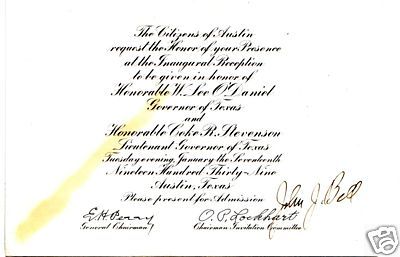 The Citizens of Austin
request the Honor of your Presence
at the Inaugural Reception
to be given in honor of
Honorable W. Lee O'Daniel
Governor of Texas
and
Honorable Coke R. Stevenson
Lieutenant Governor of Texas
Tuesday evening, January the Seventeenth
Nineteen Hundred Thirty-Nine
Austin, Texas
Please present for Admission
John J. Bell
E.H. Perry
General Chairman
O. P. Lockhart
Chairman Invitation Committee